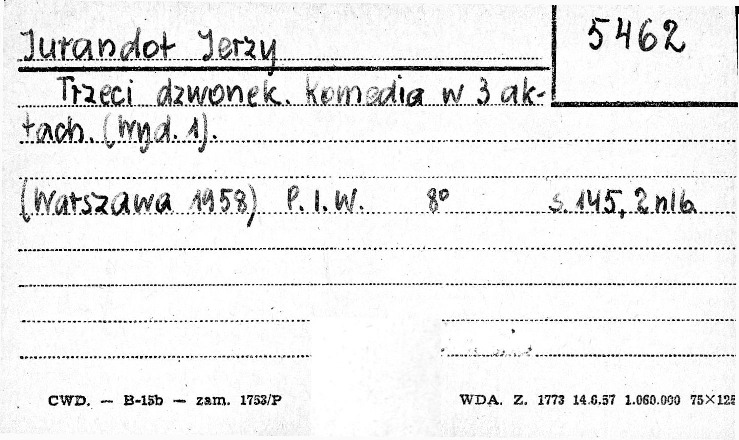 Jurandot Jerzy
5462
Trzeci dzwonek. Komedia w 3 ak-
tach. (Wyd. 1).
(Warszawa 1958) P. I. W. 8° s. 145, 2 nlb.
CWD. — B-15b — zam. 1753/P
WDA. Z. 1773 14.6.57 1.060.000 75×125